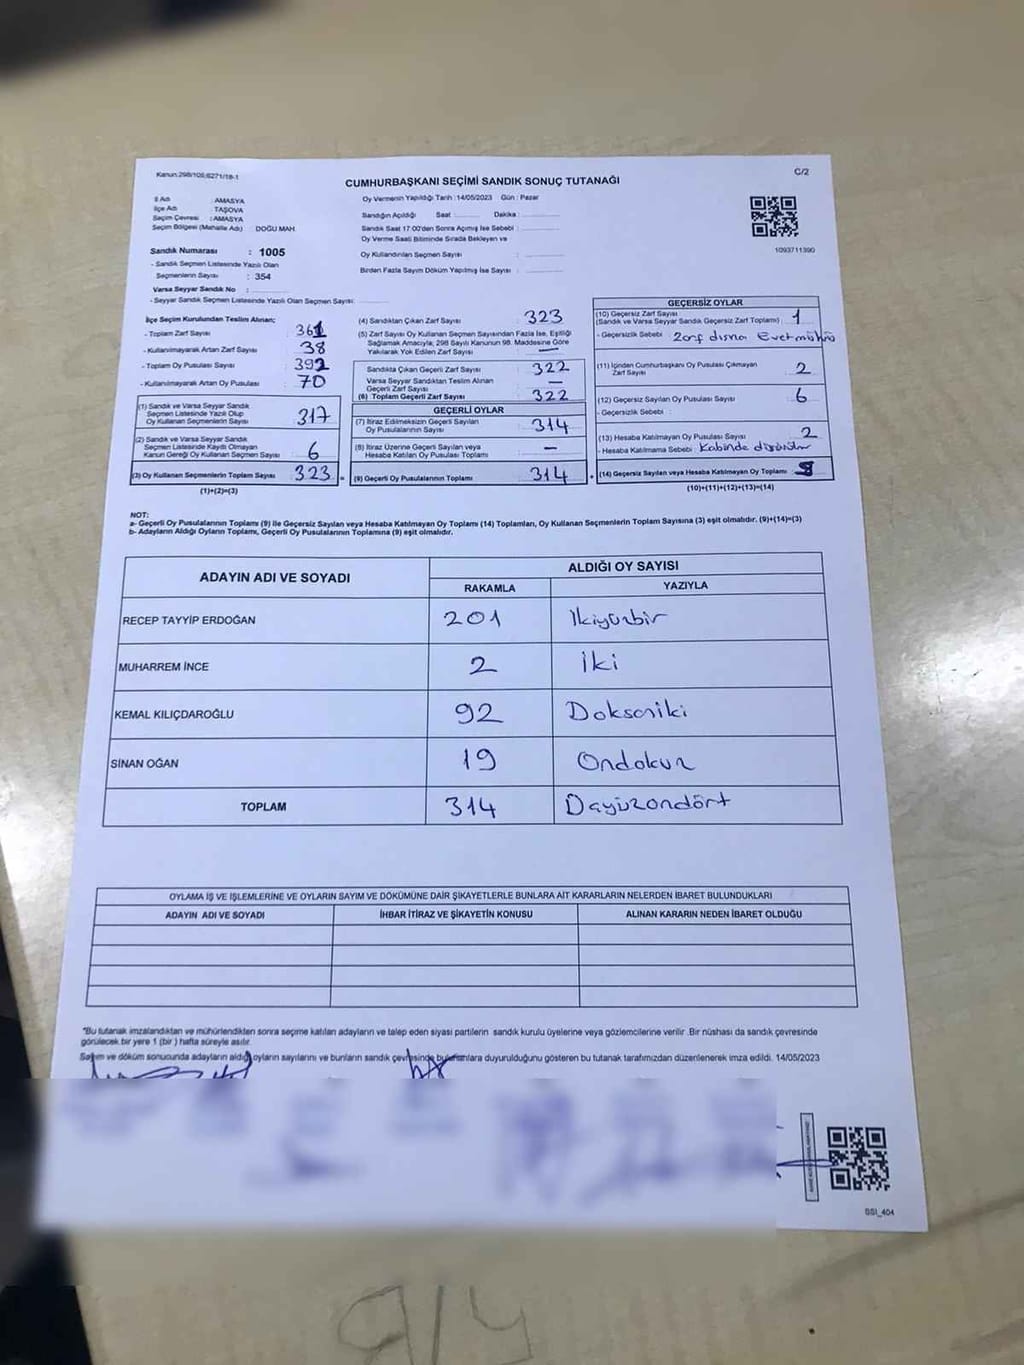 Kanun:298/105,6271/18-1
C/2
CUMHURBAŞKANI SEÇİMİ SANDIK SONUÇ TUTANAĞI
İl Adı : AMASYA
İlçe Adı : TAŞOVA
Seçim Çevresi : AMASYA
Seçim Bölgesi (Mahalle Adı) DOĞU MAH.
Sandık Numarası : 1005
- Sandık Seçmen Listesinde Yazılı Olan
Seçmenlerin Sayısı : 354
Varsa Seyyar Sandık No :
- Seyyar Sandık Seçmen Listesinde Yazılı Olan Seçmen Sayısı:
Oy Vermenin Yapıldığı Tarih :14/05/2023 Gün : Pazar
Sandığın Açıldığı Saat Dakika :
Sandık Saat 17:00'den Sonra Açımış İse Sebebi :
Oy Verme Saati Bitiminde Sırada Bekleyen ve
Oy Kullandırılan Seçmen Sayısı :
Birden Fazla Sayım Döküm Yapılmış İse Sayısı :
1093711390
İlçe Seçim Kurulundan Teslim Alınan;
- Toplam Zarf Sayısı 361
- Kullanılmayarak Artan Zarf Sayısı 38
- Toplam Oy Pusulası Sayısı 392
- Kullanılmayarak Artan Oy Pusulası 70
(1) Sandık ve Varsa Seyyar Sandık
Seçmen Listesinde Yazılı Olup
Oy Kullanan Seçmenlerin Sayısı 317
(2) Sandık ve Varsa Seyyar Sandık
Seçmen Listesinde Kayıtlı Olmayan
Kanun Gereği Oy Kullanan Seçmen Sayısı 6
(3) Oy Kullanan Seçmenlerin Toplam Sayısı 323 =
(1)+(2)=(3)
(4) Sandıktan Çıkan Zarf Sayısı 323
(5) Zarf Sayısı Oy Kullanan Seçmen Sayısından Fazla İse, Eşitliği
Sağlamak Amacıyla, 298 Sayılı Kanunun 98. Maddesine Göre
Yakılarak Yok Edilen Zarf Sayısı —
Sandıkta Çıkan Geçerli Zarf Sayısı : 322
Varsa Seyyar Sandıktan Teslim Alınan
Geçerli Zarf Sayısı : —
(6) Toplam Geçerli Zarf Sayısı : 322
GEÇERLİ OYLAR
(7) İtiraz Edilmeksizin Geçerli Sayılan
Oy Pusulalarının Sayısı : 314
(8) İtiraz Üzerine Geçerli Sayılan veya
Hesaba Katılan Oy Pusulası Toplamı : —
(9) Geçerli Oy Pusulalarının Toplamı 314 +
GEÇERSİZ OYLAR
(10) Geçersiz Zarf Sayısı
(Sandık ve Varsa Seyyar Sandık Geçersiz Zarf Toplamı) : 1
- Geçersizlik Sebebi : Zarf dışına Evet mührü
(11) İçinden Cumhurbaşkanı Oy Pusulası Çıkmayan
Zarf Sayısı : 2
(12) Geçersiz Sayılan Oy Pusulası Sayısı : 6
- Geçersizlik Sebebi :
(13) Hesaba Katılmayan Oy Pusulası Sayısı : 2
- Hesaba Katılmama Sebebi : Kabinde
(14) Geçersiz Sayılan veya Hesaba Katılmayan Oy Toplamı :
(10)+(11)+(12)+(13)=(14)
NOT:
a- Geçerli Oy Pusulalarının Toplamı (9) ile Geçersiz Sayılan veya Hesaba Katılmayan Oy Toplamı (14) Toplamları, Oy Kullanan Seçmenlerin Toplam Sayısına (3) eşit olmalıdır. (9)+(14)=(3)
b- Adayların Aldığı Oyların Toplamı, Geçerli Oy Pusulalarının Toplamına (9) eşit olmalıdır.
ADAYIN ADI VE SOYADI
ALDIĞI OY SAYISI
RAKAMLA YAZIYLA
RECEP TAYYİP ERDOĞAN 201 İkiyüzbir
MUHARREM İNCE 2 İki
KEMAL KILIÇDAROĞLU 92 Doksaniki
SİNAN OĞAN 19 Ondokuz
TOPLAM 314
OYLAMA İŞ VE İŞLEMLERİNE VE OYLARIN SAYIM VE DÖKÜMÜNE DAİR ŞİKAYETLERLE BUNLARA AİT KARARLARIN NELERDEN İBARET BULUNDUKLARI
ADAYIN ADI VE SOYADI İHBAR İTİRAZ VE ŞİKAYETİN KONUSU ALINAN KARARIN NEDEN İBARET OLDUĞU
*Bu tutanak imzalandıktan ve mühürlendikten sonra seçime katılan adayların ve talep eden siyasi partilerin sandık kurulu üyelerine veya gözlemcilerine verilir .Bir nüshası da sandık çevresinde
görülecek bir yere 1 (bir ) hafta süreyle asılır.
Sayım ve döküm sonucunda adayların aldığı oyların sayılarını ve bunların sandık çevresinde bulunanlara duyurulduğunu gösteren bu tutanak tarafımızdan düzenlenerek imza edildi. 14/05/2023
SSI_404
9/4